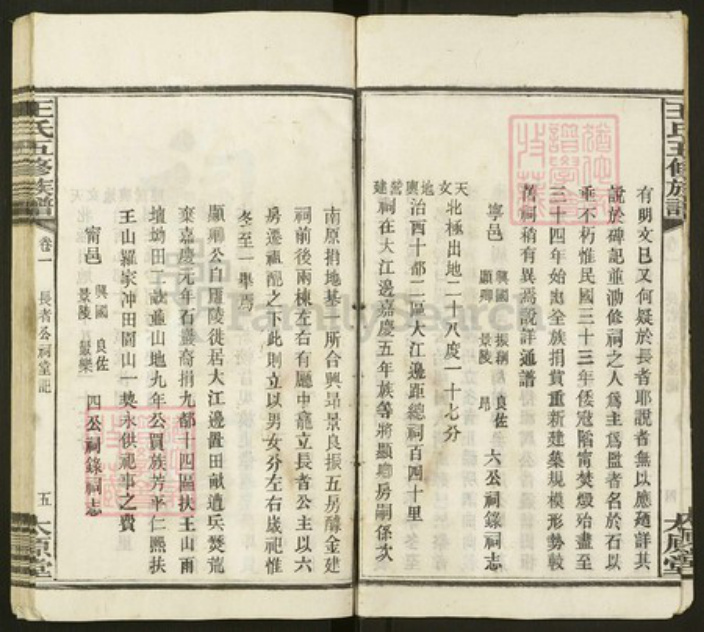 王氏五修族譜
太原堂
有明文已又何疑於長者耶說者無以應廼詳其
說於碑記並泐修祠之人爲主爲監者名於石以
垂不朽惟民國三十三年倭寇陷甯焚燬始盡至
三十四年始由全族捐貲重新建築規模形勢較
舊祠稍有異焉設詳通譜
寧邑 興國 振湖 良佐 顯卿 景陵 昂 六公祠錄祠志
天文北極出地二十八度一十七分
地輿治西十都二區大江邊距總祠百四十里
營建祠在大江邊嘉慶五年族等將顯卿房嗣係次
南原捐地基一所合興昂景良振五房醵金建
祠前後兩棟左右有廳中龕立長者公主以六
房遷祖配之下此則立以男女分左右歲祀惟
冬至一舉焉
顯卿公自羅陵徙居大江邊置田畝遭兵燹龍
棄嘉慶元年石巖裔捐九都十四區扶王山雨
壇坳田二畝並山地九年公買族芳平仁熙扶
王山羅家冲田圍山一契永供祀事之費
甯邑 興國 良佐 景陵 巖樂 四公祠錄祠志
王氏五修族譜
卷一
長者公祠堂記
五
太原堂
FamilySearch